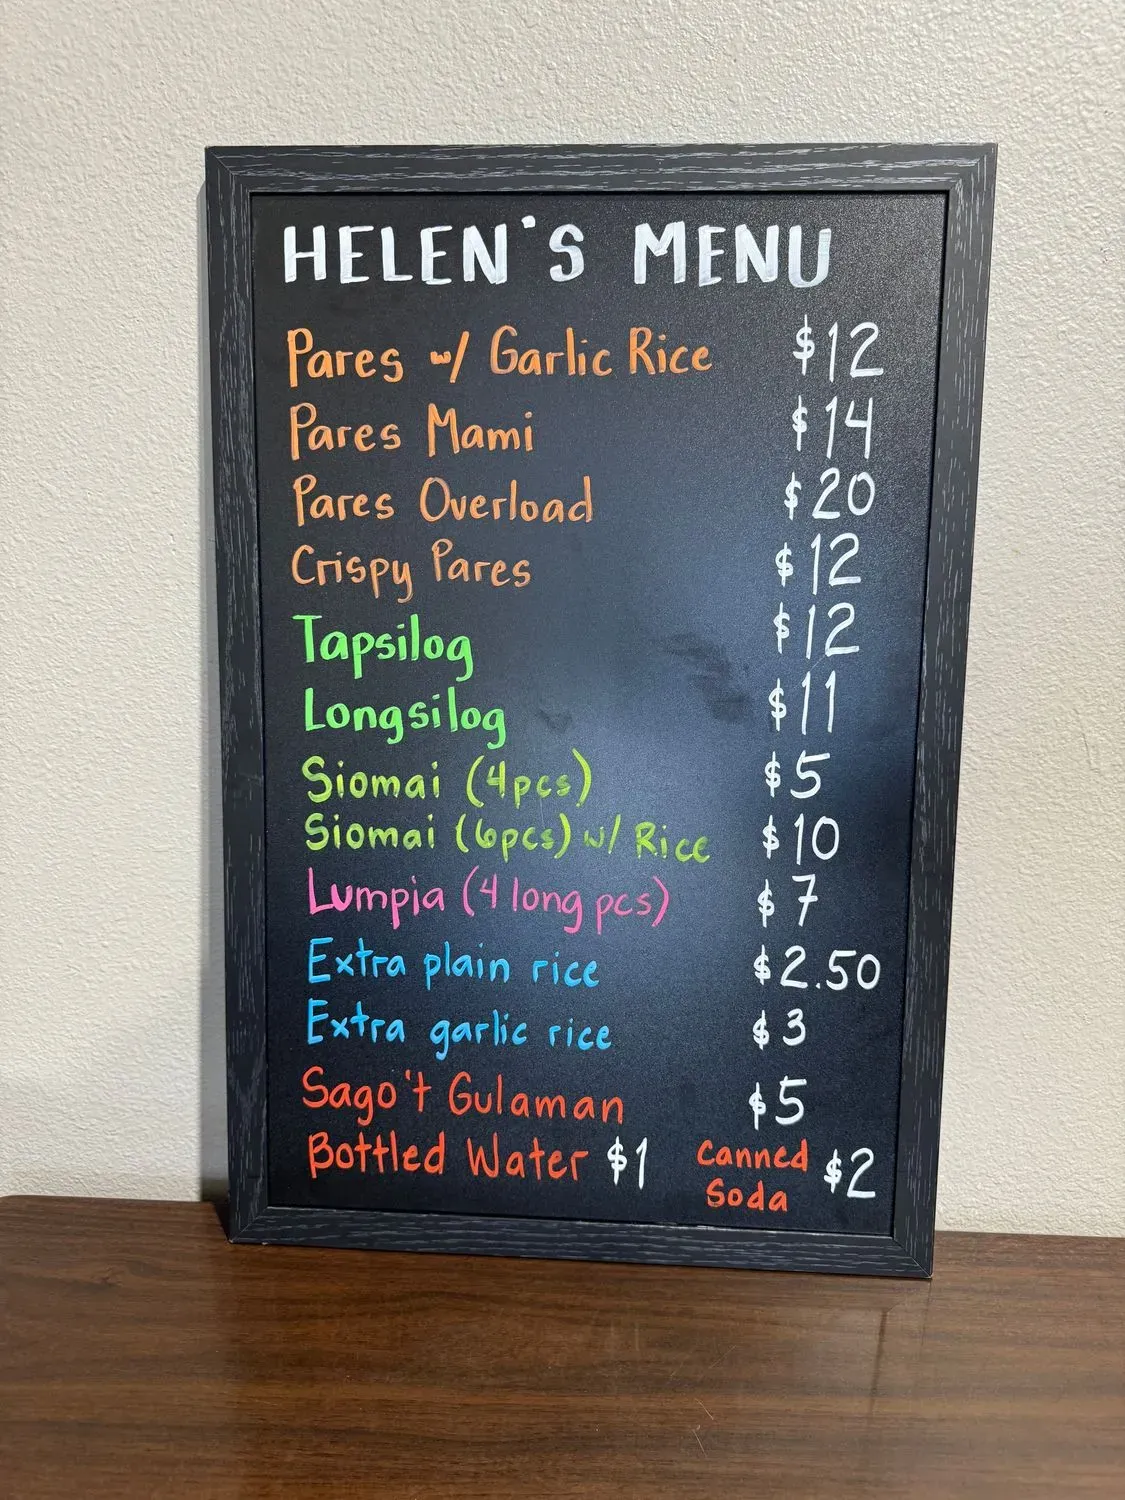 HELEN'S MENU
Pares w/ Garlic Rice $12
Pares Mami $14
Pares Overload $20
Crispy Pares $12
Tapsilog $12
Longsilog $11
Siomai (4pcs) $5
Siomai (6pcs) w/ Rice $10
Lumpia (4 long pcs) $7
Extra plain rice $2.50
Extra garlic rice $3
Sago't Gulaman $5
Bottled Water $1 Canned Soda $2